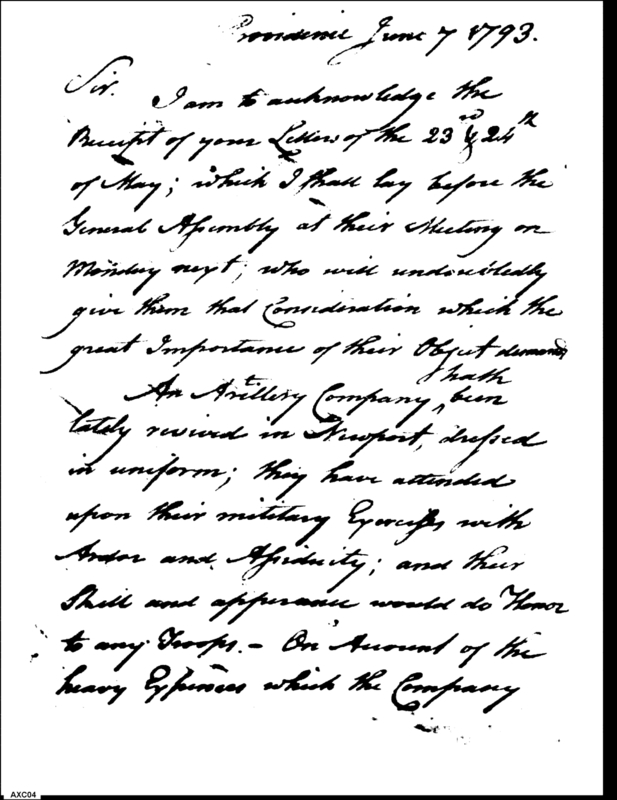 Providence June 7 1793.
Sir.
I am to acknowledge the
Receipt of your Letters of the 23rd & 24th
of May; which I shall lay before the
General Assembly at their Meeting on
Monday next; who will undoubtedly
give them that Consideration which the
great Importance of their Object demands
hath
An Artillery Company ^ been
lately revived in Newport, dressed
in uniform; they have attended
upon their military Exercises with
Ardor and Assiduity; and their
Skill and apperance would do Honor
to any Troops. - On Account of the
heavy Expences which the Company
AXC04